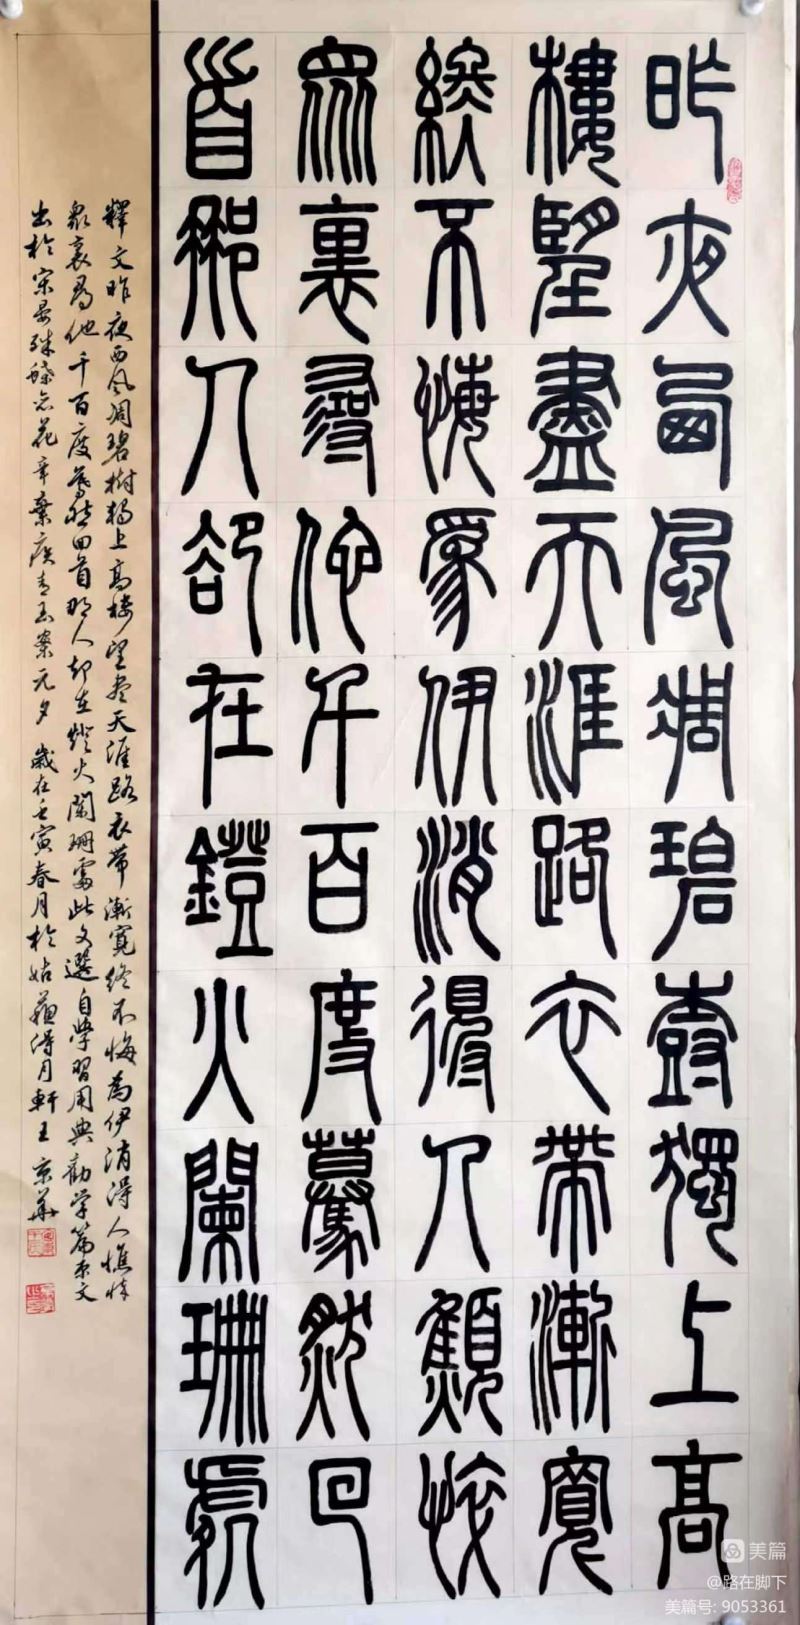 昨夜西風凋碧樹獨上高
樓望盡天涯路衣帶漸寬
終不悔為伊消得人顦悴
眾裏尋他千百度驀然回
首那人卻在鐙火闌珊處
釋文昨夜西风凋碧樹獨上高楼望尽天涯路衣帶漸寬终不悔為伊消得人憔悴
眾裏尋他千百度驀然回首那人却在燈火闌珊處此文選自學習用典勸学篇原文
出於宋晏殊蝶恋花辛棄疾青玉案元夕 歲在壬寅春月於姑蘇得月軒王京華
美篇
@路在脚下
美篇号: 9053361